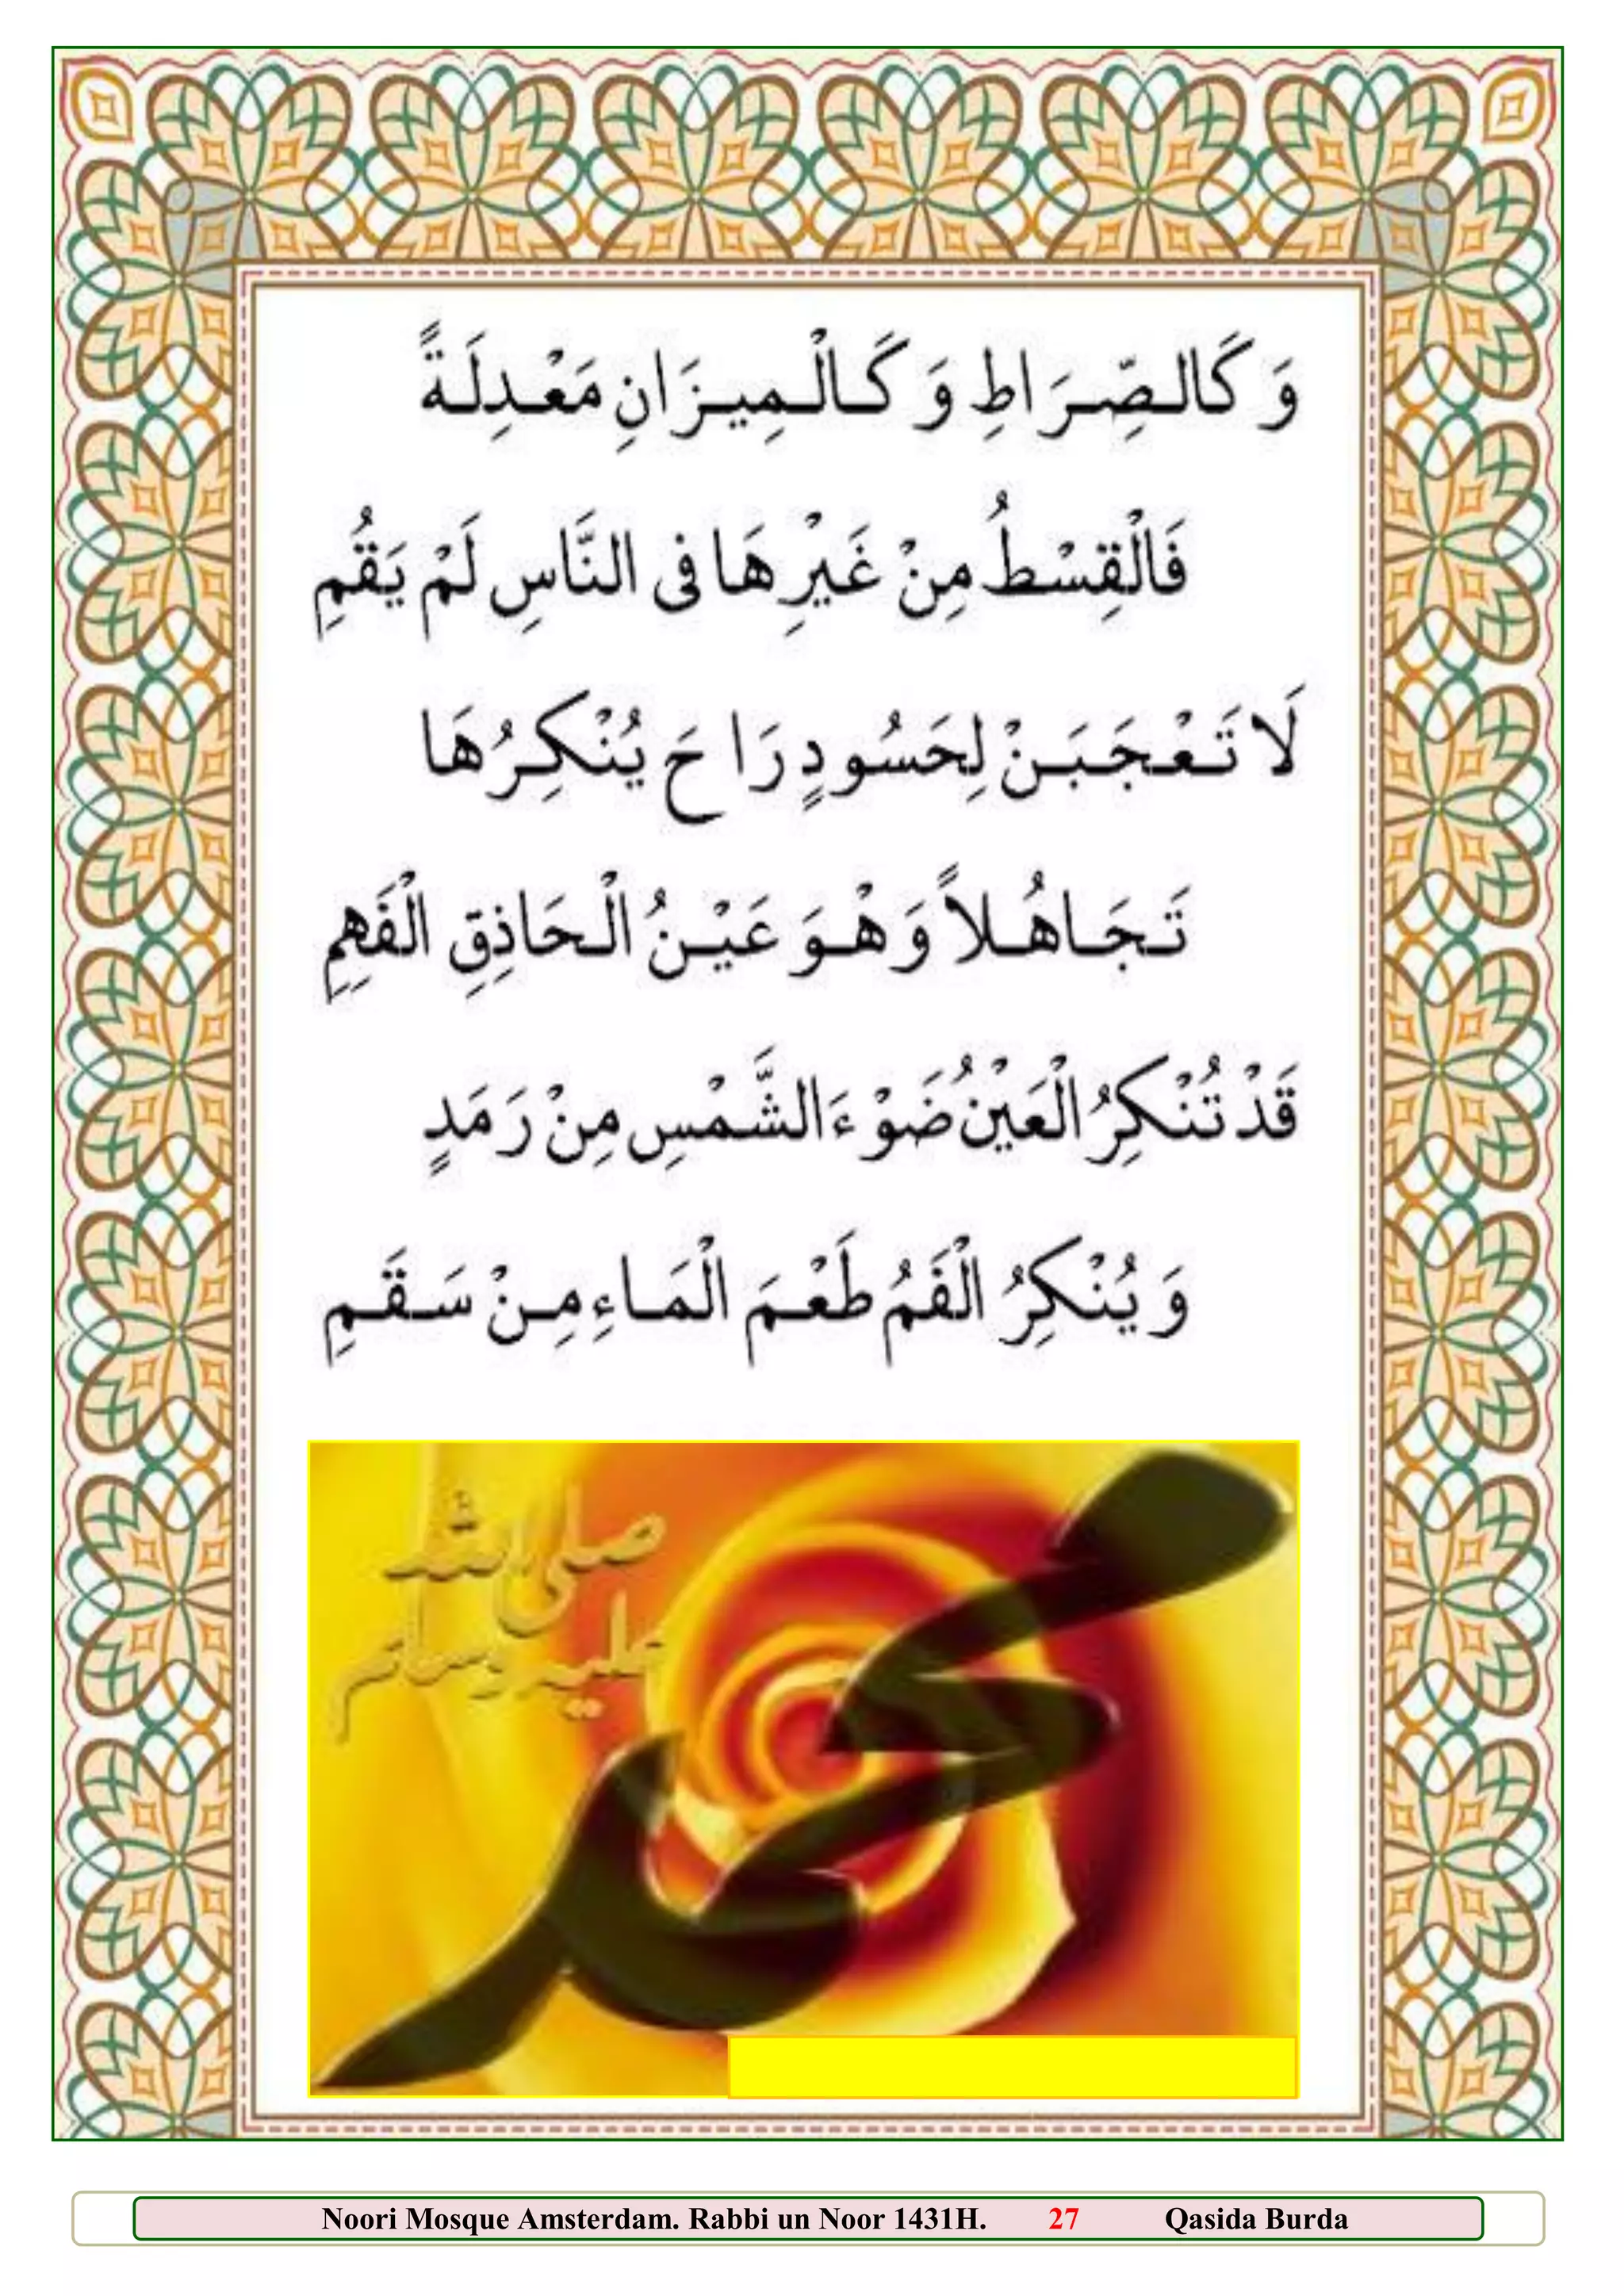 وَ كَالـصِّـرَاطِ وَ كَـالْـمِيـزَانِ مَعْـدِلَـةً
فَالْقِسْطُ مِنْ غَيْرِهَا فِى النَّاسِ لَمْ يَقُمِ
لَا تَـعْـجَـبَـنْ لِحَسُودٍ رَاحَ يُنْكِـرُهَا
تَـجَـاهُـلاً وَهْـوَ عَيْـنُ الْـحَاذِقِ الْفَهِمِ
قَدْ تُنْكِرُ الْعَيْنُ ضَوْءَ الشَّمْسِ مِنْ رَمَدٍ
وَ يُنْكِرُ الْفَمُ طَعْـمَ الْمَـاءِ مِـنْ سَـقَـمِ
صلى الله
عليه وسلم
محمد
Noori Mosque Amsterdam. Rabbi un Noor 1431H. 27 Qasida Burda